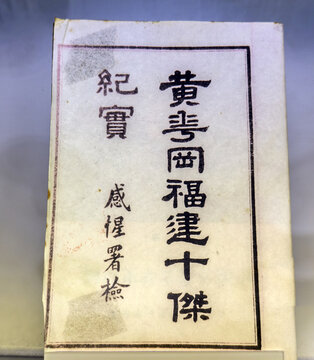 黄花岡福建十傑
紀實
感惺署檢